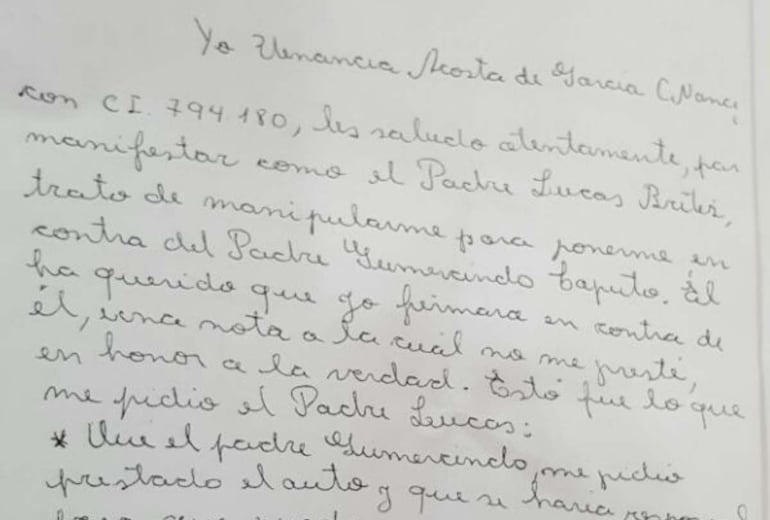 Yo Venancia Acosta de Garcia (Nanci
con CI. 794.180, les saludo atentamente, par
manifestar como el Padre Lucas Britez,
trato de manipularme para ponerme en
contra del Padre Gumercindo Caputo. Él
ha querido que yo firmara en contra de
él, una nota a la cuál no me presté,
en honor a la verdad. Estó fue lo que
me pidio el Padre Lucas:
* Que el padre Gumercindo, me pidio
prestado el auto y que se haria